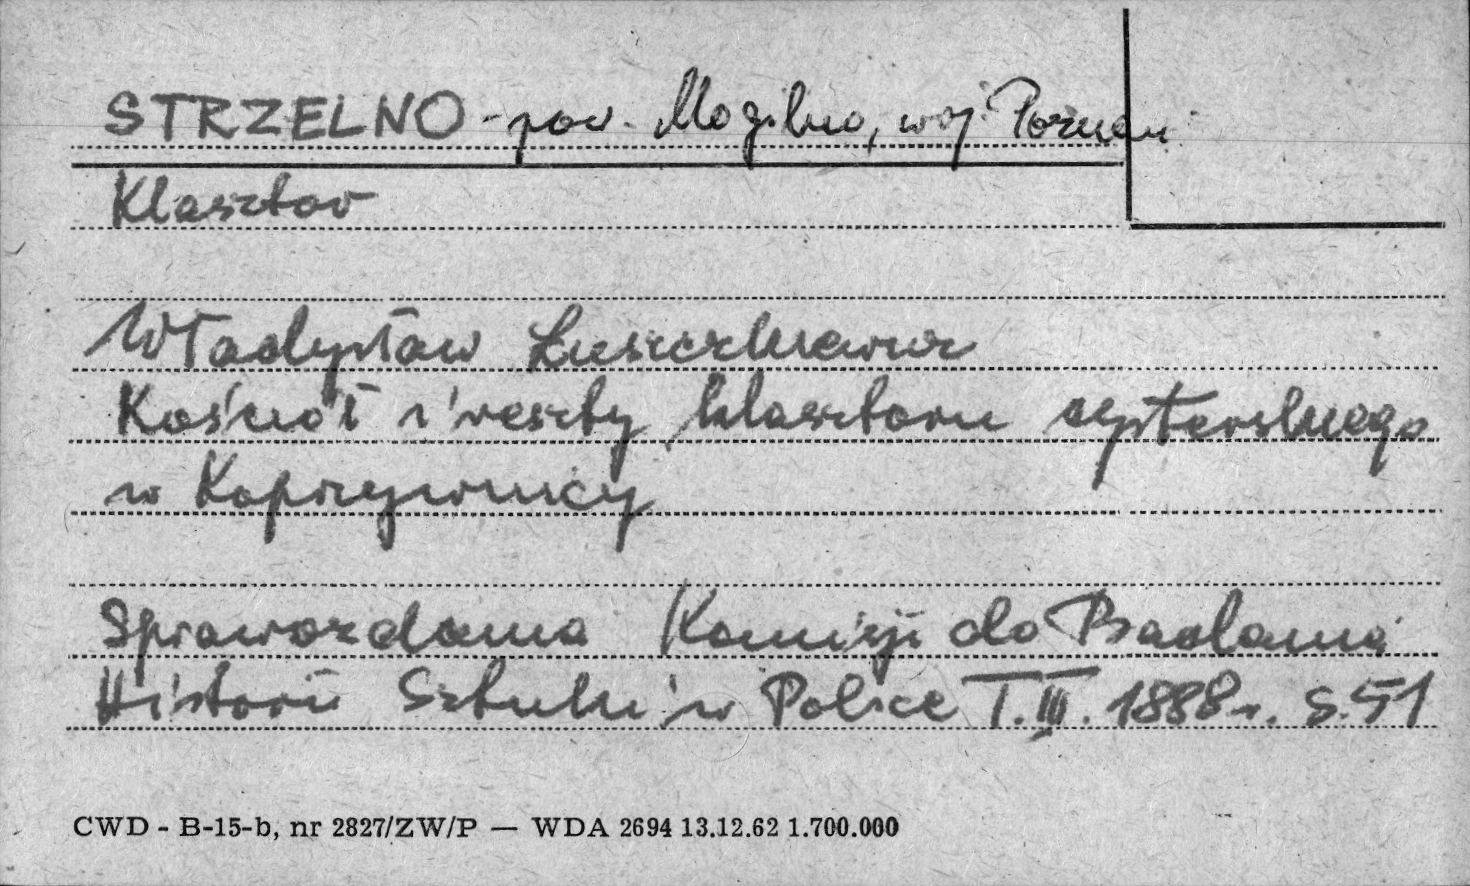 STRZELNO - pow. Mogilno, woj. Poznań
Klasztor
Władysław Łuszczkiewicz
Kościół i reszty klasztoru cysterskiego
w Koprzywnicy
Sprawozdania Komisji do Badania
Historii Sztuki w Polsce T. III. 1888 r. s. 51
CWD - B-15-b, nr 2827/ZW/P — WDA 2694 13.12.62 1.700.000